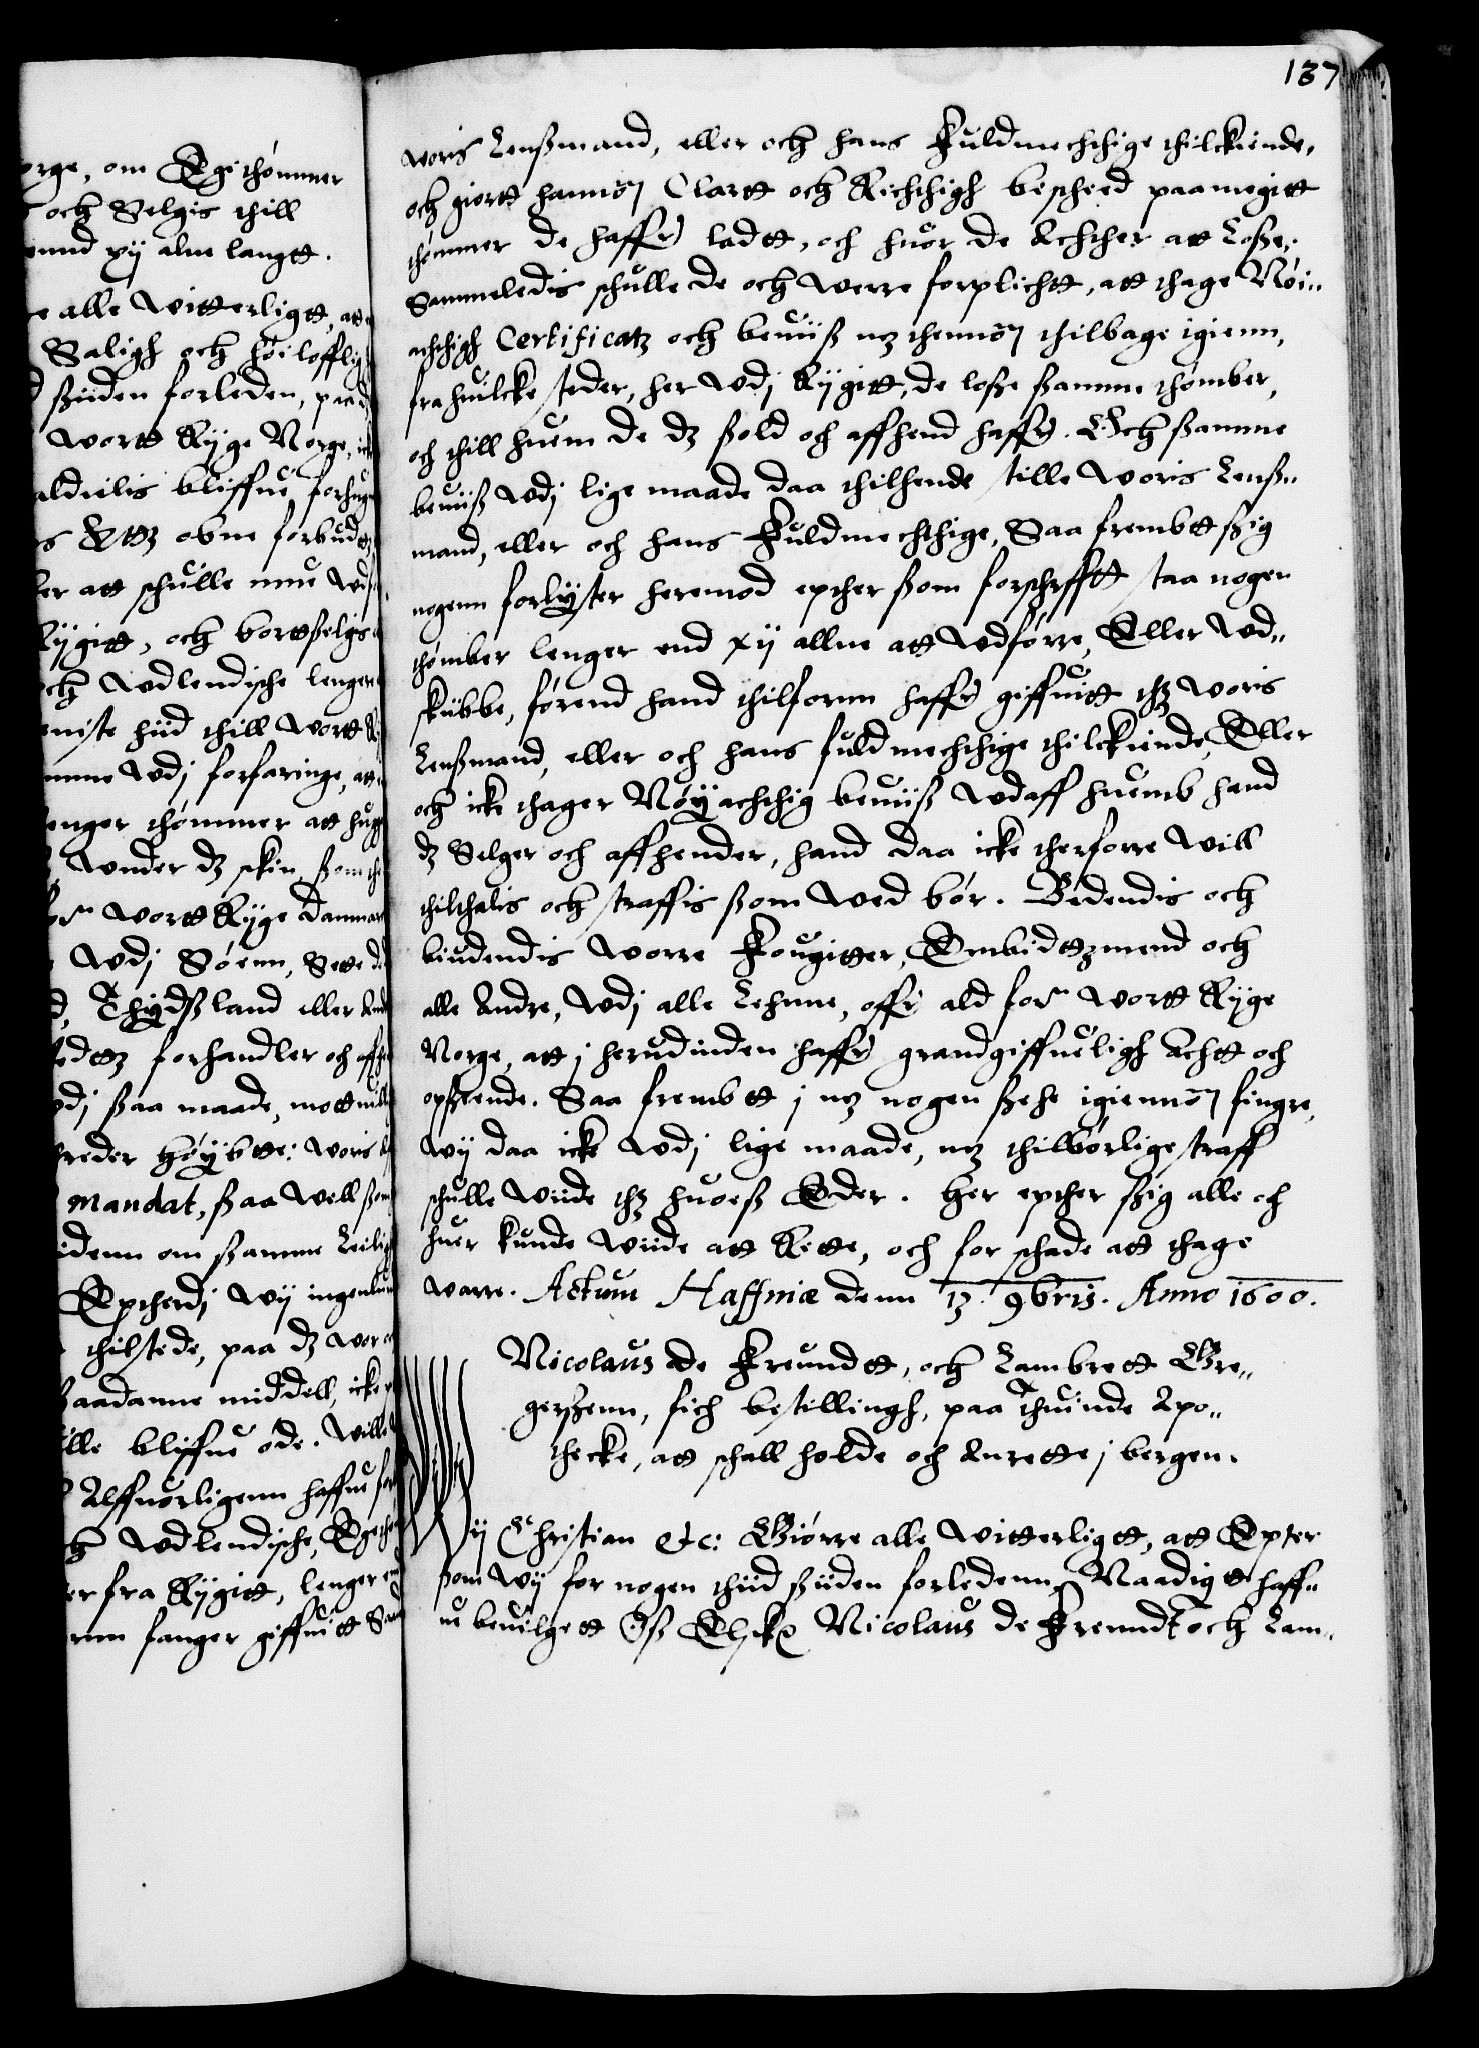 orge, om Egethømmer
och Selgis thill
ennd xij alne langtt.
re alle witterligtt, att
Saligh och høilofflig
d siiden forleden, paa
wortt Ryge Norge, ick
aldielis bliffue forhug
obne forbudtz
er att schulle nue Udi
Rygitt, och borttselgis
ch Udlendische lenger
eniste hiid thill wortt
mme Udj forfaringe, att
enger thømmer att hugg
Under dz skin, som the
for wortt Ryge Danmar
Udj Søenn, Sette de
d, Thydsland eller And
tedtz forhandler och affh
dj saa maade, mottuill
reder høybtte: woris
mandat, saa well som
idenn om samme Leilig
Epcherdj Wy ingenlun
thilstede, paa dz wor
saadanne middell, icke
ille bliffue øde. Wille
Alffuorligenn haffue for
h Udlendische, Egethø
er fra Rygitt, lenger en
rnn fanger giffuitt Saa
137
woris Lenssmand, eller och hans Fuldmechthige thilckiende,
och giortt hannom Clartt och Richthigh bescheed paa megitt
thømmer de haffr ladtt, och huor de Achther att Losse,
Sammeledis schulle de och werre forplichtt, att thage Nøi„
achthigh Certificatz och beuiiss mz thennom thilbage igienn,
fra huilcke steder, her Udj Rygitt, de losse samme thømber,
och thill huem de dz sold och affhend haffr. Och samme
beuiiss Udj lige maade daa thilhende stille woris Lenss„
mand, eller och hans Fuldmechthige, Saa frembtt sig
nogenn forlyster heremod epther som forschrfftt staa nogen
thømber lenger end xij allne att Udførre, Eller Ud„
skibbe, førend hand thilforn haffr giffuitt thz woris
Lenssmand, eller och hans fuldmechthige thilckiende, Eller
och icke thager Nøyachthig beuiiss Udaff huemb hand
dz Selger och affhender, hand daa icke therforre will
thilthalis och straffis som wed bør. Bedendis och
biudendis worre Fougitter, Embidtzmend och
alle Andre, Udj alle Lehnne, offr ald forn wortt Ryge
Norge, att j herudinden haffr grandgiffueligh Achtt och
opseende. Saa frembtt j mz nogen sehe igiennom fingre,
Wy daa icke Udj lige maade, mz thilbørlige straff
schulle Wiide thz huoess Eder. Her epther sig alle och
huer kunde Wiide att Rette, och for schade att thage
warre. Actum Haffniæ denn 13. 9bris. Anno 1600.
Nicolaus de Freundtt, och Lambrett Gre„
gerssenn, fich bestillingh, paa thuinde Apo„
thecke, att schall holde och Anrette j bergen.
Wy Christian etc: Giørre alle witterligtt, att Epter
som Wy for nogen thiid siiden forledenn, Naadigtt haff„
ue beuilgett Oss Elsck Nicolaus de Freundt och Lam„